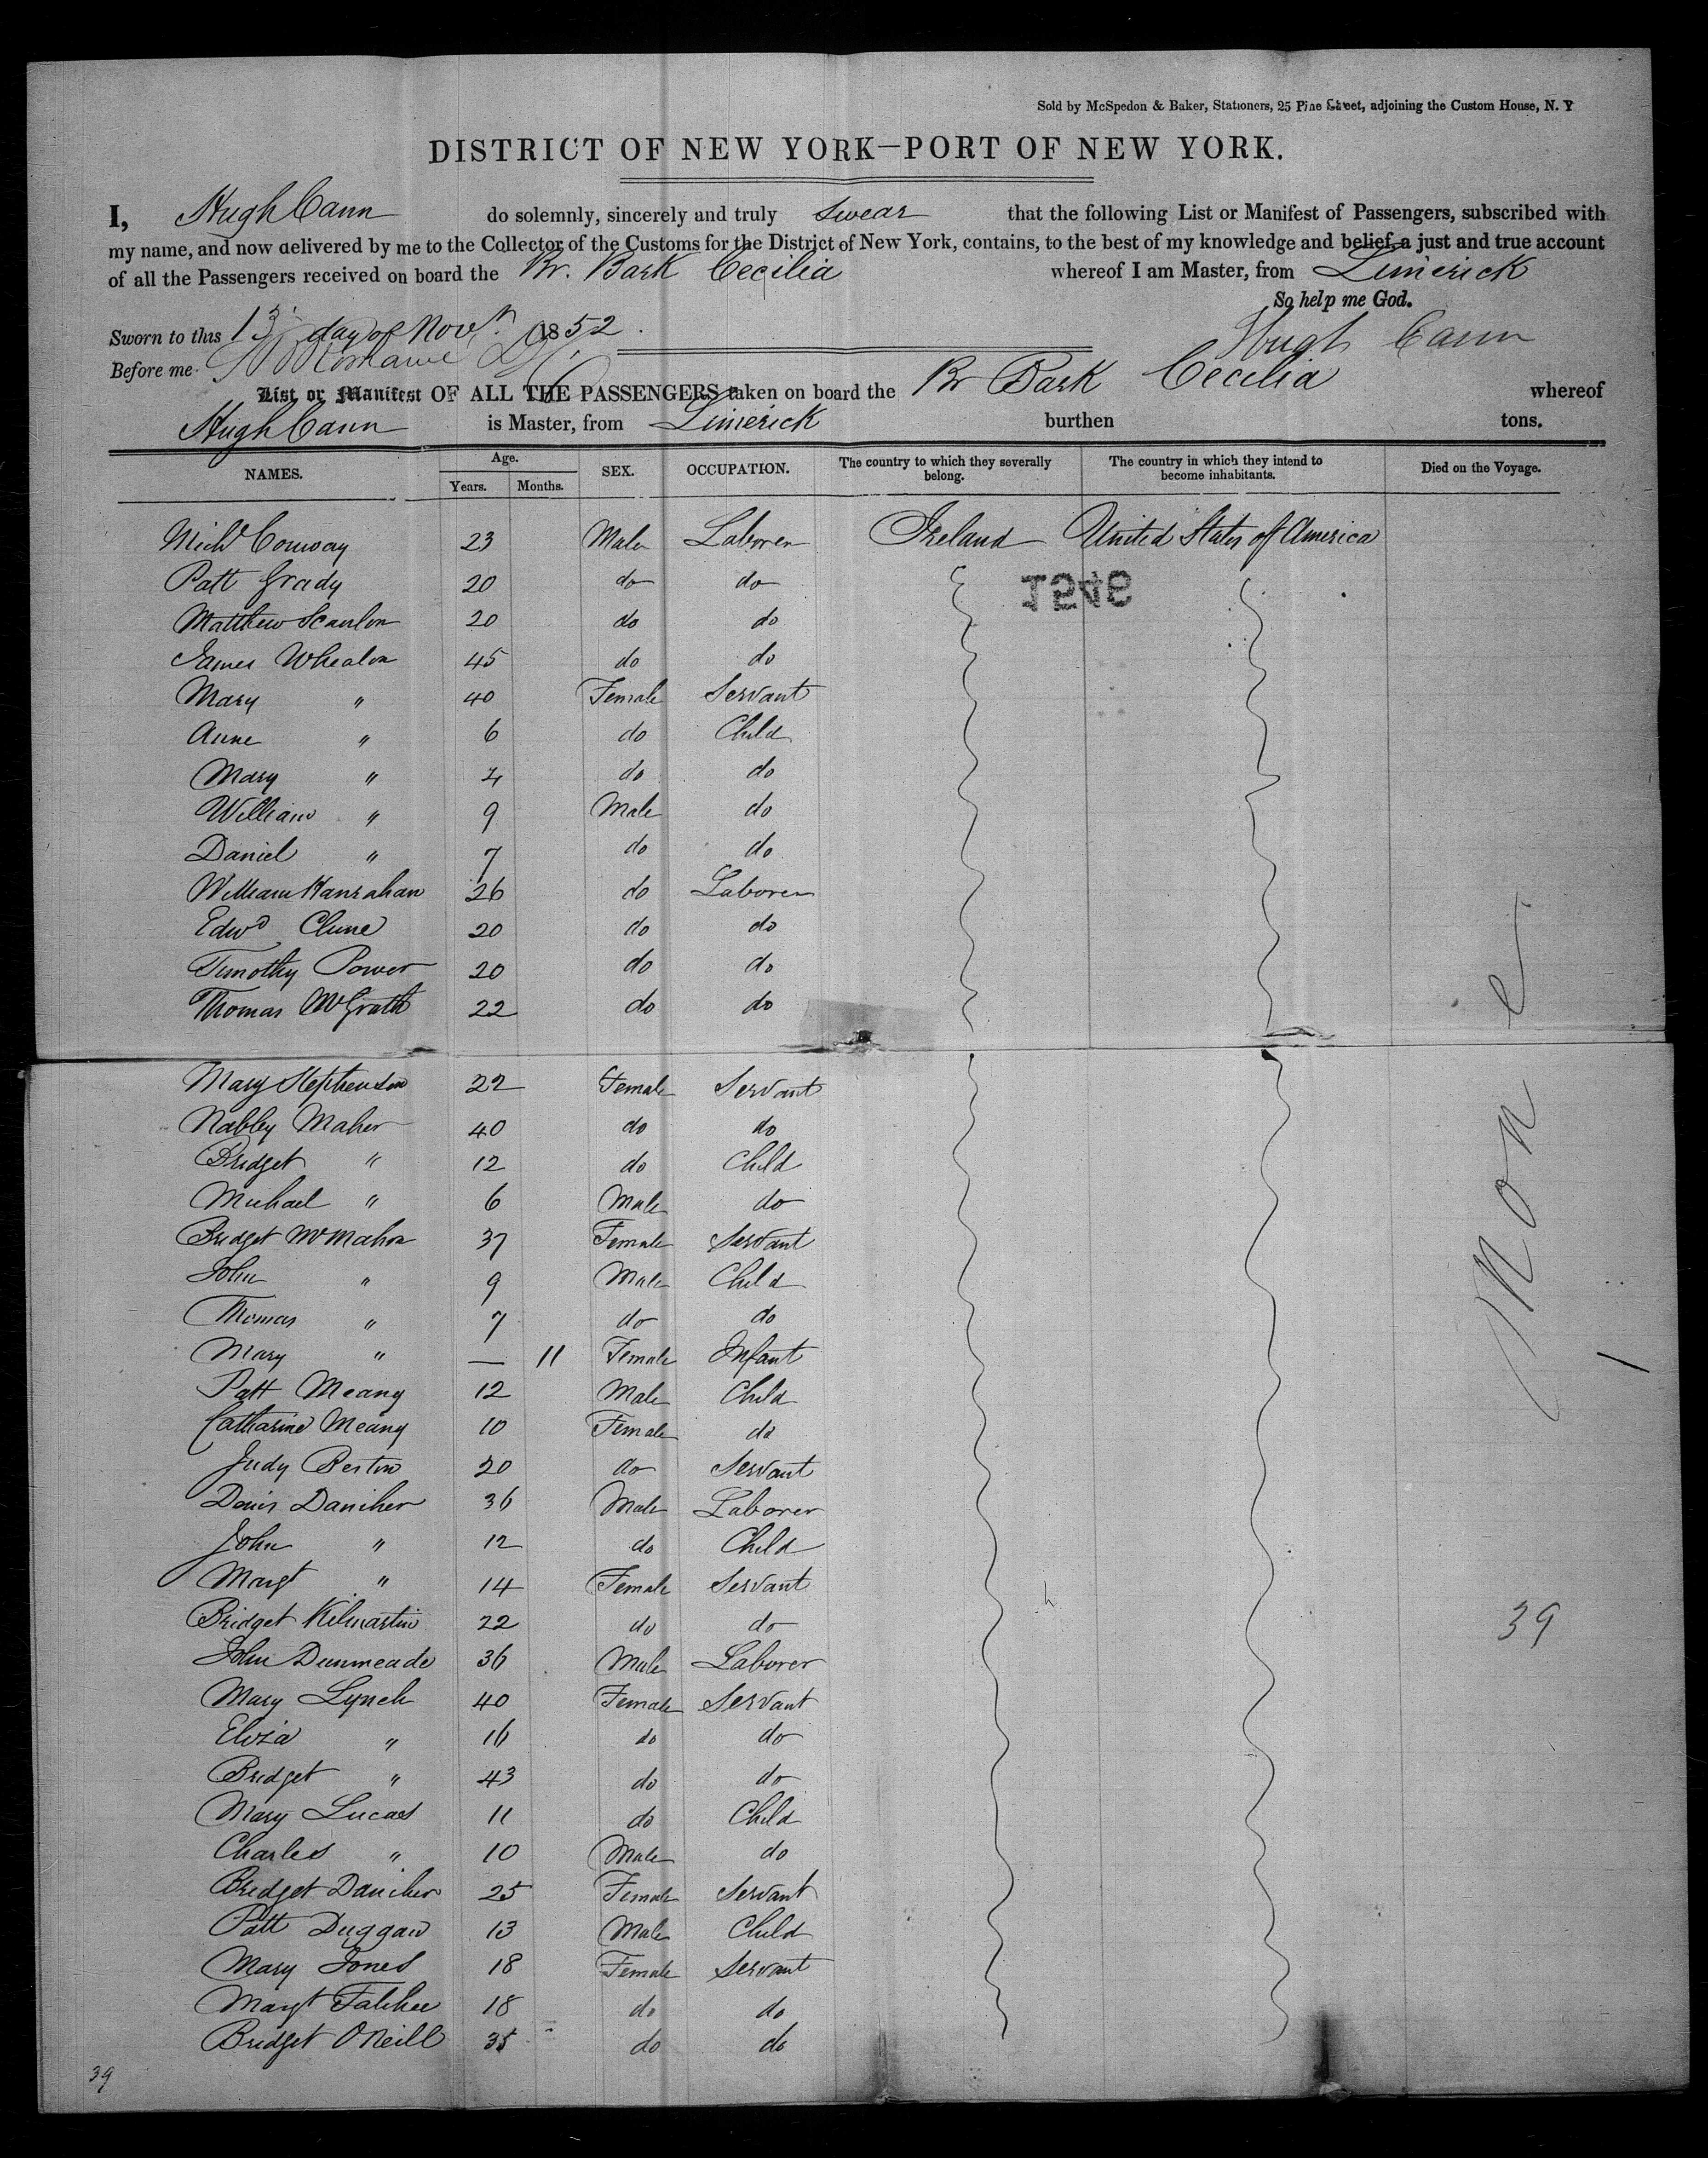 Sold by McSpedon & Baker, Stationers, 25 Pine Street, adjoining the Custom House, N. Y
DISTRICT OF NEW YORK—PORT OF NEW YORK.
I, Hugh Cann do solemnly, sincerely and truly swear that the following List or Manifest of Passengers, subscribed with
my name, and now delivered by me to the Collector of the Customs for the District of New York, contains, to the best of my knowledge and belief, a just and true account
of all the Passengers received on board the Br. Bark Cecilia whereof I am Master, from Limerick
So help me God.
Sworn to this 13 day of Novr. 1852. Hugh Cann
Before me
List or Manifest OF ALL THE PASSENGERS taken on board the Br Bark Cecilia whereof
Hugh Cann is Master, from Limerick burthen tons.
NAMES. Age. Years. Months. SEX. OCCUPATION. The country to which they severally belong. The country in which they intend to become inhabitants. Died on the Voyage.
Michl Conway 23 Male Laborer Ireland United States of America
Patt Grady 20 do do
Matthew Scanlon 20 do do
James Whealon 45 do do
Mary " 40 Female Servant
Anne " 6 do Child
Mary " 4 do do
William " 9 Male do
Daniel " 7 do do
William Hanrahan 26 do Laborer
Edwd Clune 20 do do
Timothy Power 20 do do
Thomas McGrath 22 do do
Mary Stephenson 22 Female Servant
Nabby Maher 40 do do
Bridget " 12 do Child
Michael " 6 Male do
Bridget McMahon 37 Female Servant
John " 9 Male Child
Thomas " 7 do do
Mary " — 11 Female Infant
Patt Meany 12 Male Child
Catharine Meany 10 Female do
Judy 20 do Servant
Denis Daniher 36 Male Laborer
John " 12 do Child
Margt " 14 Female Servant
Bridget Kilmartin 22 do do
John Dunmeade 36 Male Laborer
Mary Lynch 40 Female Servant
Eliza " 16 do do
Bridget " 43 do do
Mary Lucas 11 do Child
Charles " 10 Male do
Bridget Daniher 25 Female Servant
Patt Duggan 13 Male Child
Mary Jones 18 Female Servant
Margt 18 do do
Bridget O'Neill 35 do do
None
39
39